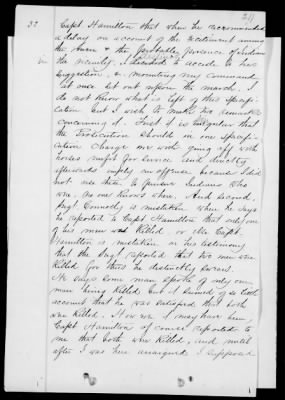 32
211
Capt Hamilton that when he recommended
a delay on account of the excitement among
the men & the probable presence of Indians
in the vicinity, I decided to accede to his
suggestion, & mounting my command
at once set out upon the march. I
do not know what is left of this specifi-
cation but I wish to make two remarks
concerning it. First it is singular that
the Prosecution should in one specifi-
cation charge me with going off with
horses unfit for service and directly
afterwards imply an offense because I did
not use them to pursue Indians who
were no one knows where. And second,
Sergt. Connelly is mistaken when he says
he reported to Capt Hamilton that only one
of his men was killed, or else Capt.
Hamilton is mistaken in his testimony
that the Sergt reported that two men were
killed for this he distinctly swears.
He says some man spoke of only one
man being killed but it seemed of so little
account that he was satisfied that both
were killed. However it may have been,
Capt Hamilton of course reported to
me that both were killed, and until
after I was here arraigned I supposed